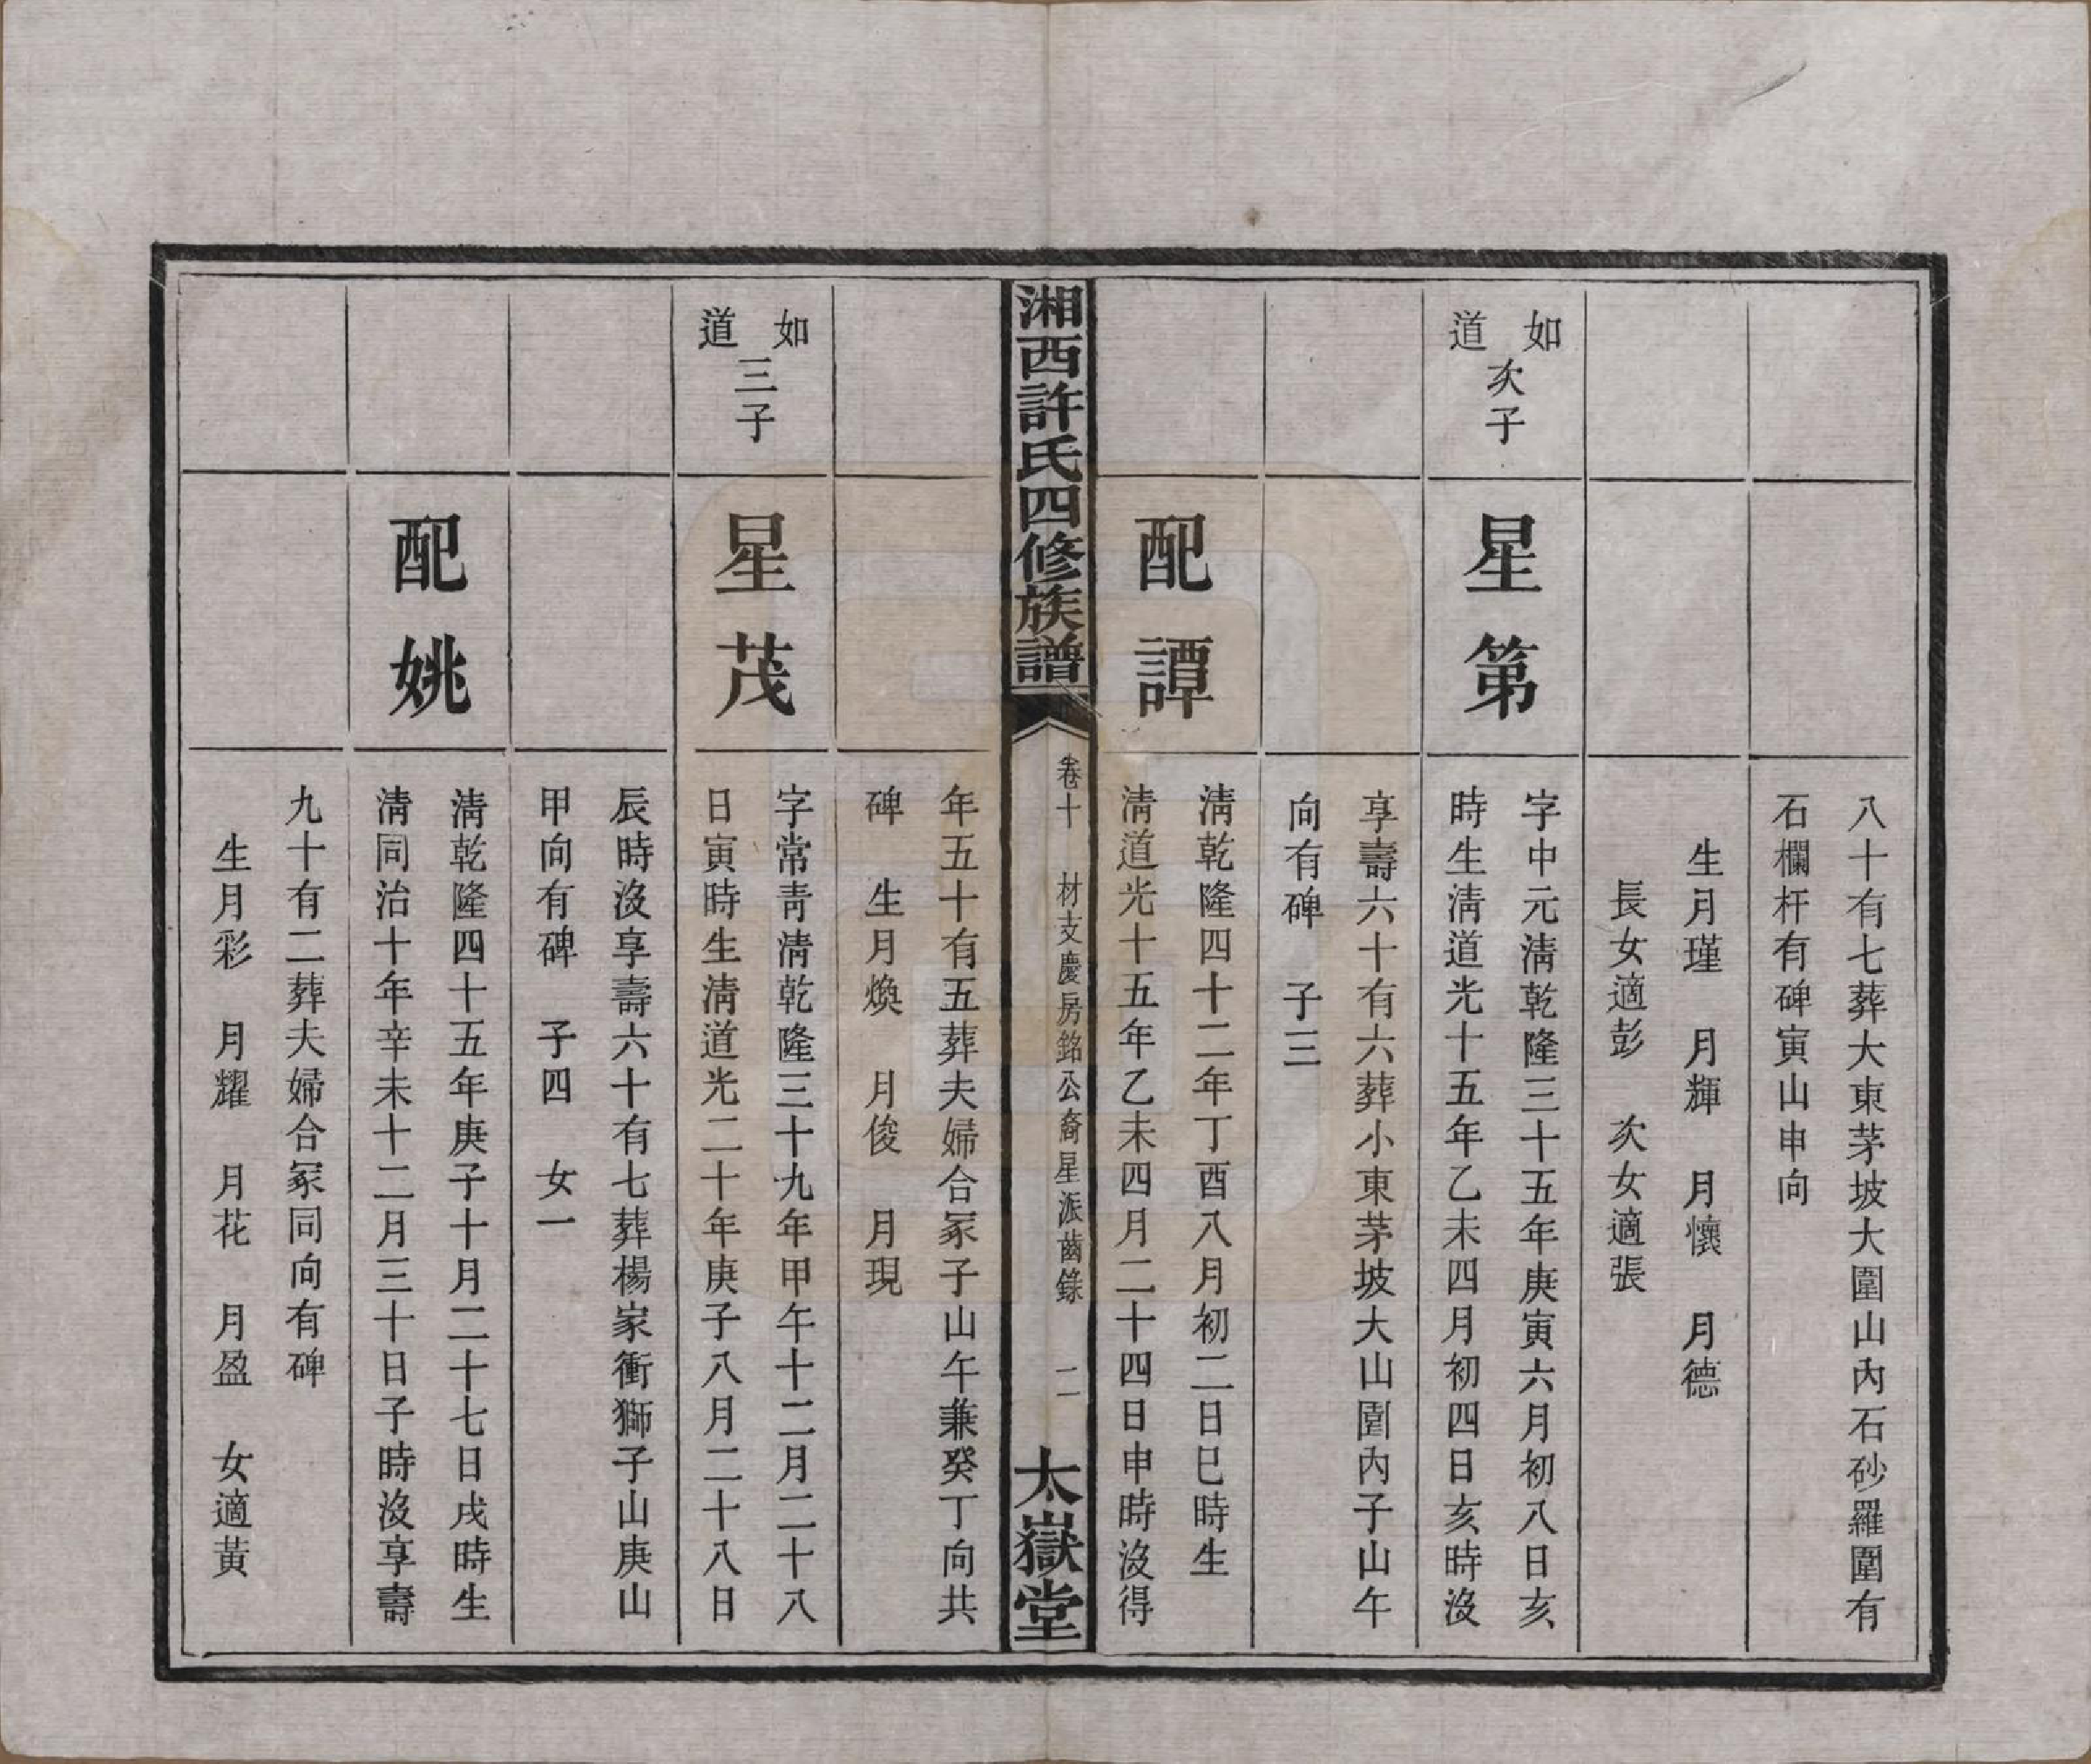 八十有七葬大東茅坡大圍山內石砂羅圍有
石欄杆有碑寅山申向
生月瑾　月輝　月懷　月德
長女適彭　次女適張
如道次子
星第
字中元淸乾隆三十五年庚寅六月初八日亥
時生淸道光十五年乙未四月初四日亥時沒
享壽六十有六葬小東茅坡大山圍內子山午
向有碑　子三
配譚
淸乾隆四十二年丁酉八月初二日巳時生
淸道光十五年乙未四月二十四日申時沒得
湘西許氏四修族譜
卷十　材支慶房銘公裔星派齒錄
二一
太嶽堂
年五十有五葬夫婦合冢子山午兼癸丁向共
碑　生月煥　月俊　月現
如道三子
星茂
字常青淸乾隆三十九年甲午十二月二十八
日寅時生淸道光二十年庚子八月二十八日
辰時沒享壽六十有七葬楊家衝獅子山庚山
甲向有碑　子四　女一
配姚
淸乾隆四十五年庚子十月二十七日戌時生
淸同治十年辛未十二月三十日子時沒享壽
九十有二葬夫婦合冢同向有碑
生月彩　月耀　月花　月盈　女適黃